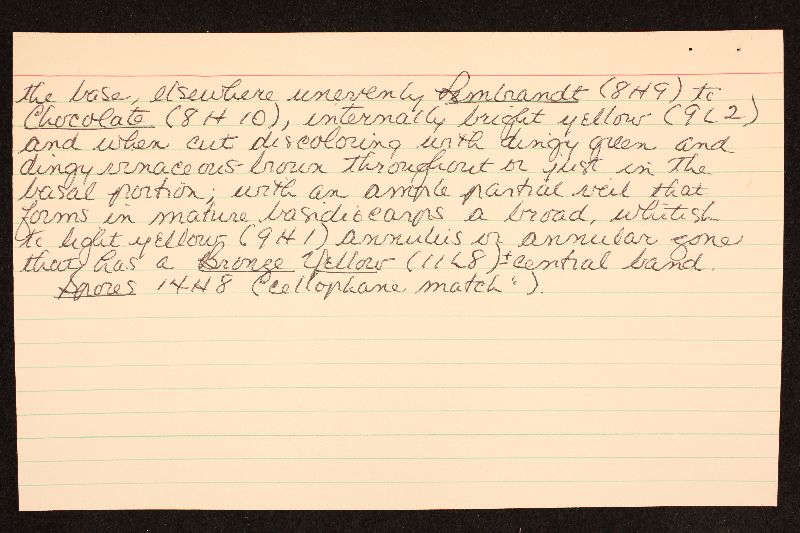 the base, elsewhere unevenly Rembrandt (8H9) to
Chocolate (8H10), internally bright yellow (9L2)
and when cut discoloring with dingy green and
dingy vinaceous-brown throughout or just in the
basal portion; with an ample partial veil that
forms in mature basidiocarps a broad, whitish
to light yellow (9H1) annulus or annular zone
that has a Bronze Yellow (11L8) ± central band.
Spores 14H8 ("cellophane match").